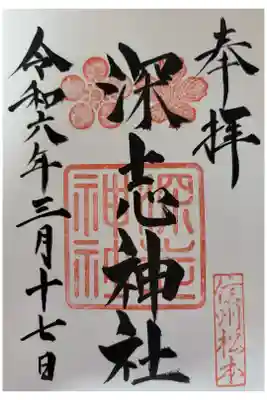 奉拝
深志神社
深志
神社
信州松本
令和六年三月十七日